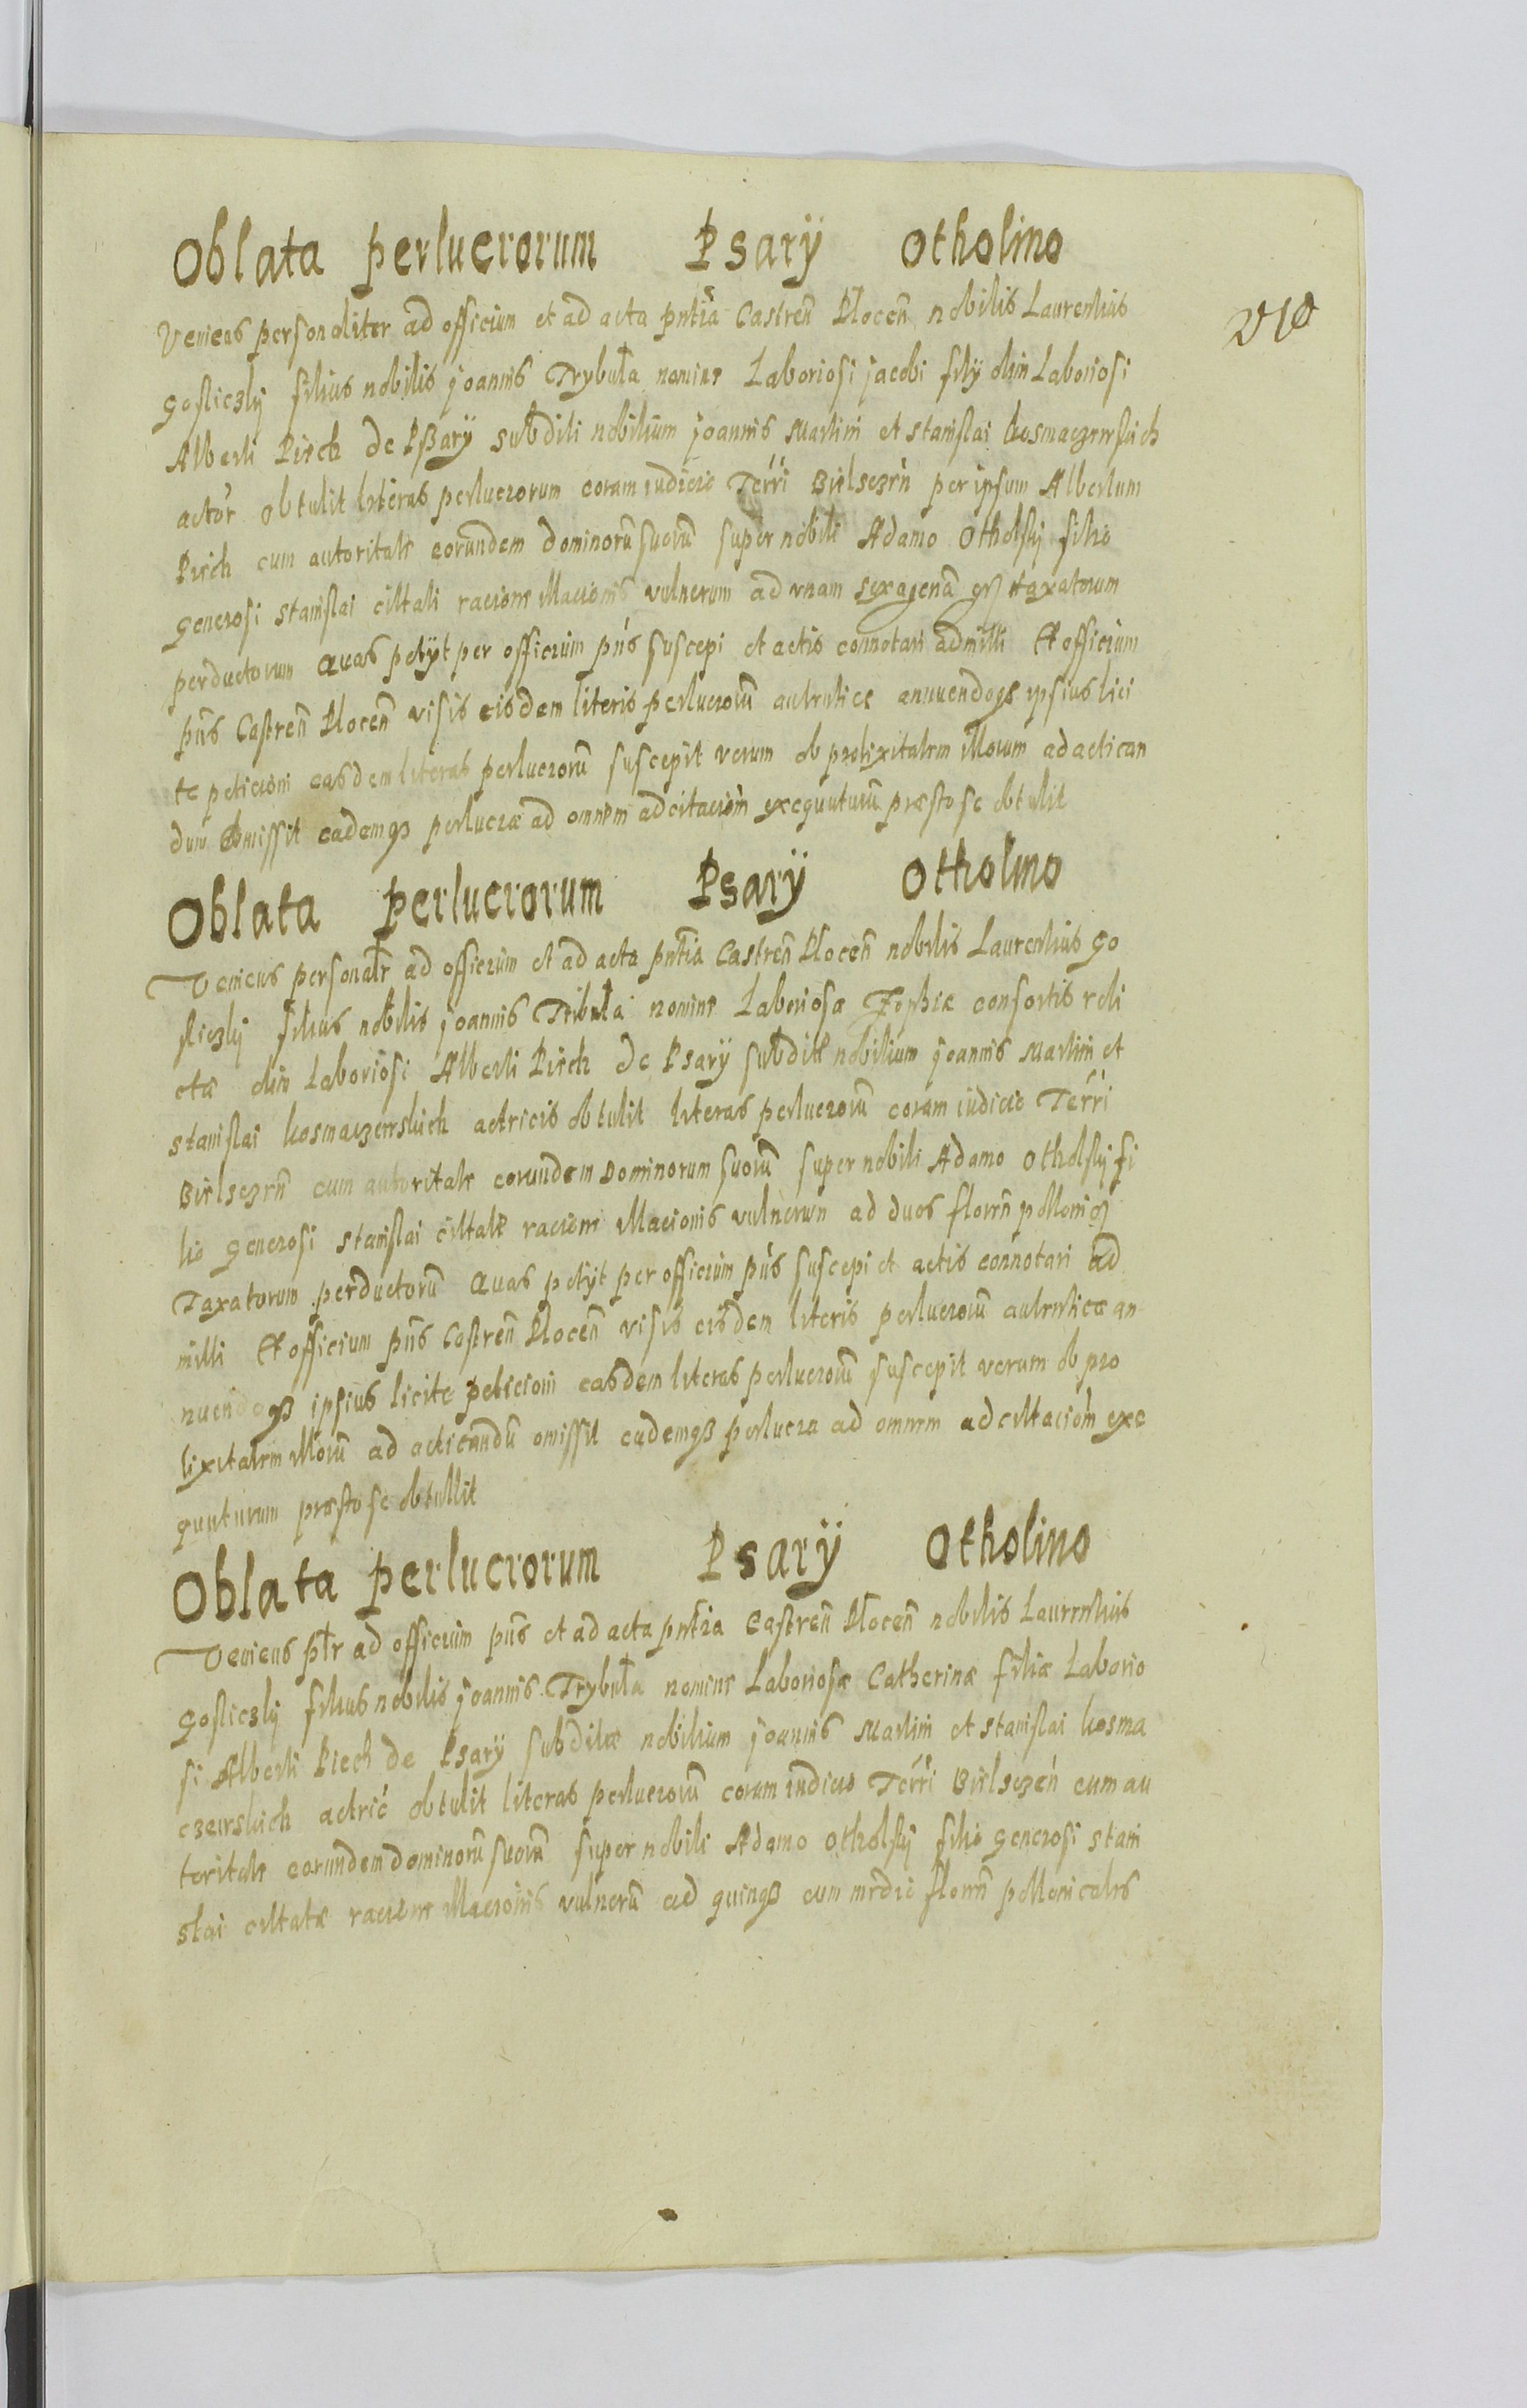 Oblata perlucrorum Psarÿ Otholino
Veniens personaliter ad officium et ad acta pntia Castren̄ Plocen̄ nobilis Laurentius
Gosliczky filius nobilis Joannis Trybuła nomine Laboriosi Jacobi filÿ olim Laboriosi
Alberti Piech de Pßarÿ subditi nobilium Joannis Martini et Stanislai Kosmaczewskich
actor obtulit literas perlucrorum coram iudicio Terri Bielsczen̄ per ipsum Albertum
Piech cum autoritate eorundem dominorū suorū super nobili Adamo Otholskÿ filio
Generosi Stanislai cittati racione illacionis vulnerum ad vnam sexagenā taxatorum
perductorum Quas petÿt per officium pn̄s suscepi et actis connotari admitti Et officium
pn̄s Castren̄ Plocen̄ visis eisdem literis perlucrorū autentice annuendoqȝ ipsius lici
te peticioni easdem literas perlucrorū suscepit verum ob prolixitatem illorum ad actican
dum omissit eademqȝ perlucra ad omnem adcitacion̄ exequuturū præsto se obtulit
Oblata perlucrorum Psarÿ Otholino
Veniens personalr ad officium et ad acta pntia Castren̄ Plocen̄ nobilis Laurentius Go
sliczky filius nobilis Joannis Tribuła nomine Laboriosæ Zophiæ consortis reli
ctæ olim Laboriosi Alberti Piech de Psarÿ subditæ nobilium Joannis Martini et
Stanislai Kosmaczewskich actricis obtulit literas perlucrorū coram iudicio Terri
Bielsczen̄ cum autoritate eorundem Dominorum suorū super nobili Adamo Otholskÿ fi
lio Generosi Stanislai cittate racione illacionis vulnerum ad duos floren̄ pollonicȝ
Taxatorum perductorū Quas petÿt per officium pn̄s suscepi et actis connotari ad
mitti Et officium pn̄s Castren̄ Plocen̄ visis eisdem literis perlucrorū autentice an
nuendoqȝ ipsius licite peticioni easdem literas perlucrorū suscepit verum ob pro
lixitatem illorū ad acticandū omissit eademqȝ perlucra ad omnem adcittacion̄ exe
quuturum præsto se obtullit
Oblata perlucrorum Psarÿ Otholino
Veniens plr ad officium pn̄s et ad acta pntia Castren̄ Plocen̄ nobilis Laurentius
Gosliczky filius nobilis Joannis Trybuła nomine Laboriosæ Catherinæ filiæ Laborio
si Alberti Piech de Psarÿ subditæ nobilium Joannis Martini et Stanislai Kosma
czewskich actric obtulit literas perlucrorū coram iudicio Terri Bielsczen̄ cum au
toritate eorundem dominorū suorū super nobili Adamo Otholskÿ filio Generosi Stani
slai cittatæ racione illacionis vulnerū ad quinqȝ cum medio floren̄ pollonicales